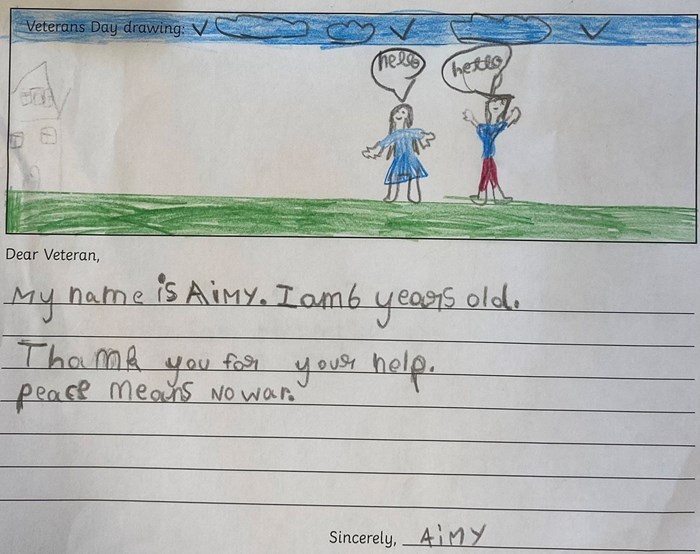 Veterans Day drawing:
hello
hello
Dear Veteran,
My name is AiMY. I am 6 years old.
Thank you for your help.
peace means no war.
Sincerely, AiMY